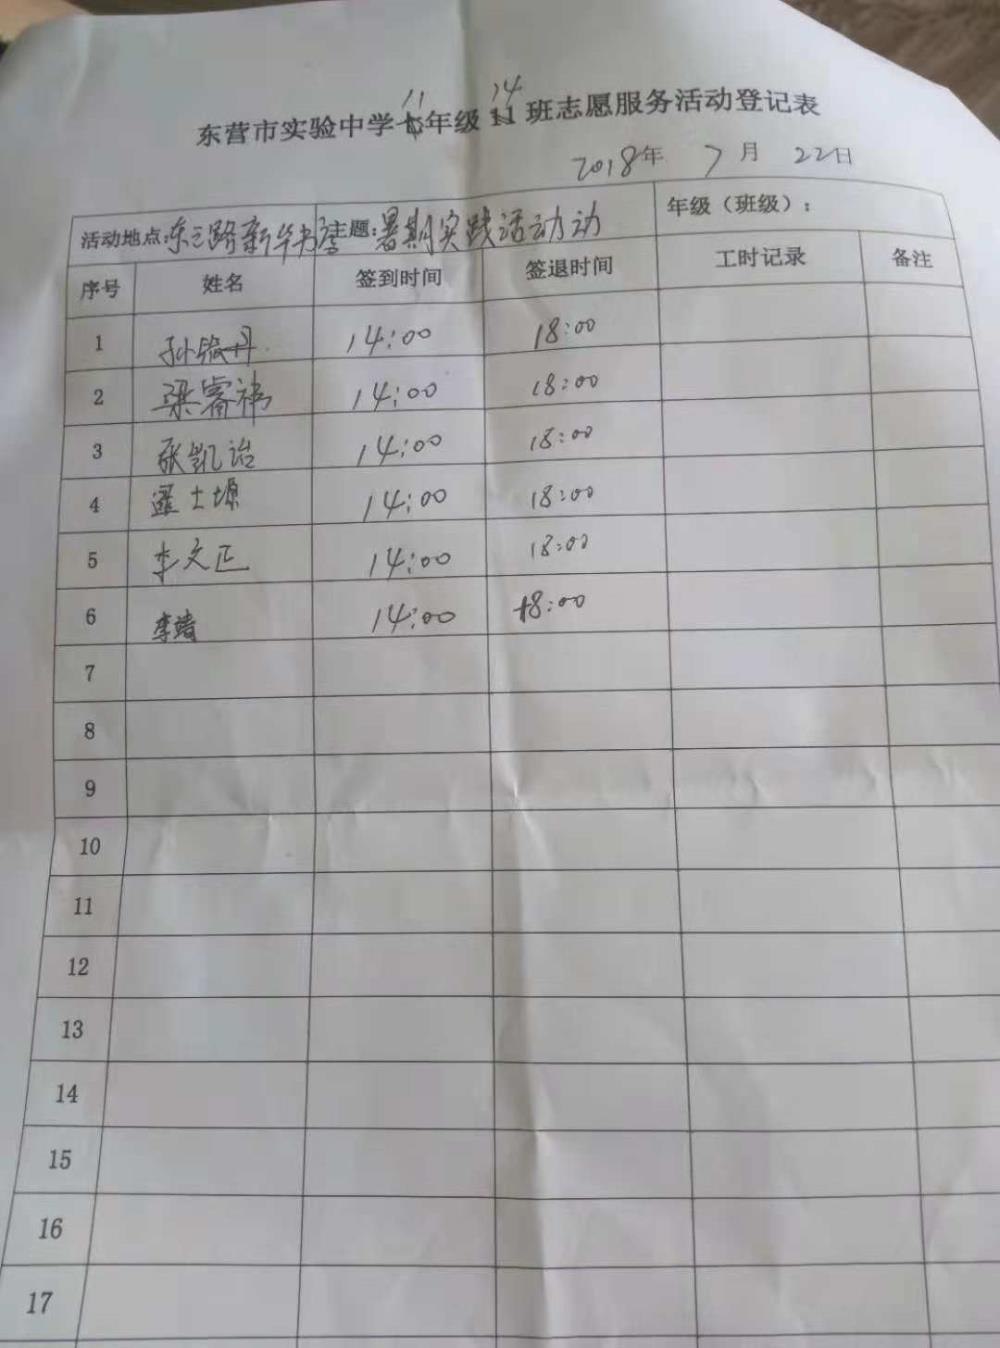 11 14
东营市实验中学年级11班志愿服务活动登记表
2018年 7月 22日
活动地点:东三路新华书店 主题:暑期实践活动动 年级（班级）:
序号 姓名 签到时间 签退时间 工时记录 备注
1 孙 丹 14:00 18:00
2 梁睿祎 14:00 18:00
3 张凯诒 14:00 18:00
4 士塬 14:00 18:00
5 李文正 14:00 18:00
6 李靖 14:00 18:00
7
8
9
10
11
12
13
14
15
16
17